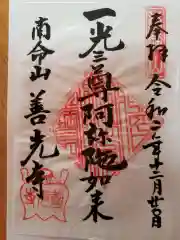 奉拝 令和二年十二月廿日
一光三尊阿弥陀如来
南命山 善光寺